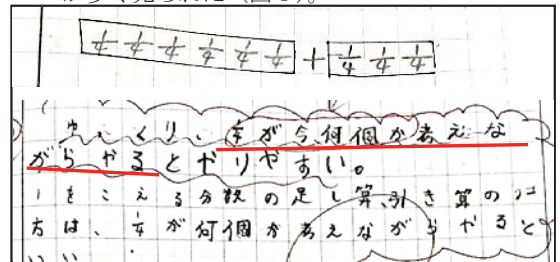 1/4 1/4 1/4 1/4 1/4 1/4 + 1/4 1/4 1/4
ゆっくり、1/4が今、何個か考えな
がらやるとやりやすい。
1をこえる分数の足し算、引き算の
方は、1/4が何個か考えながらやると